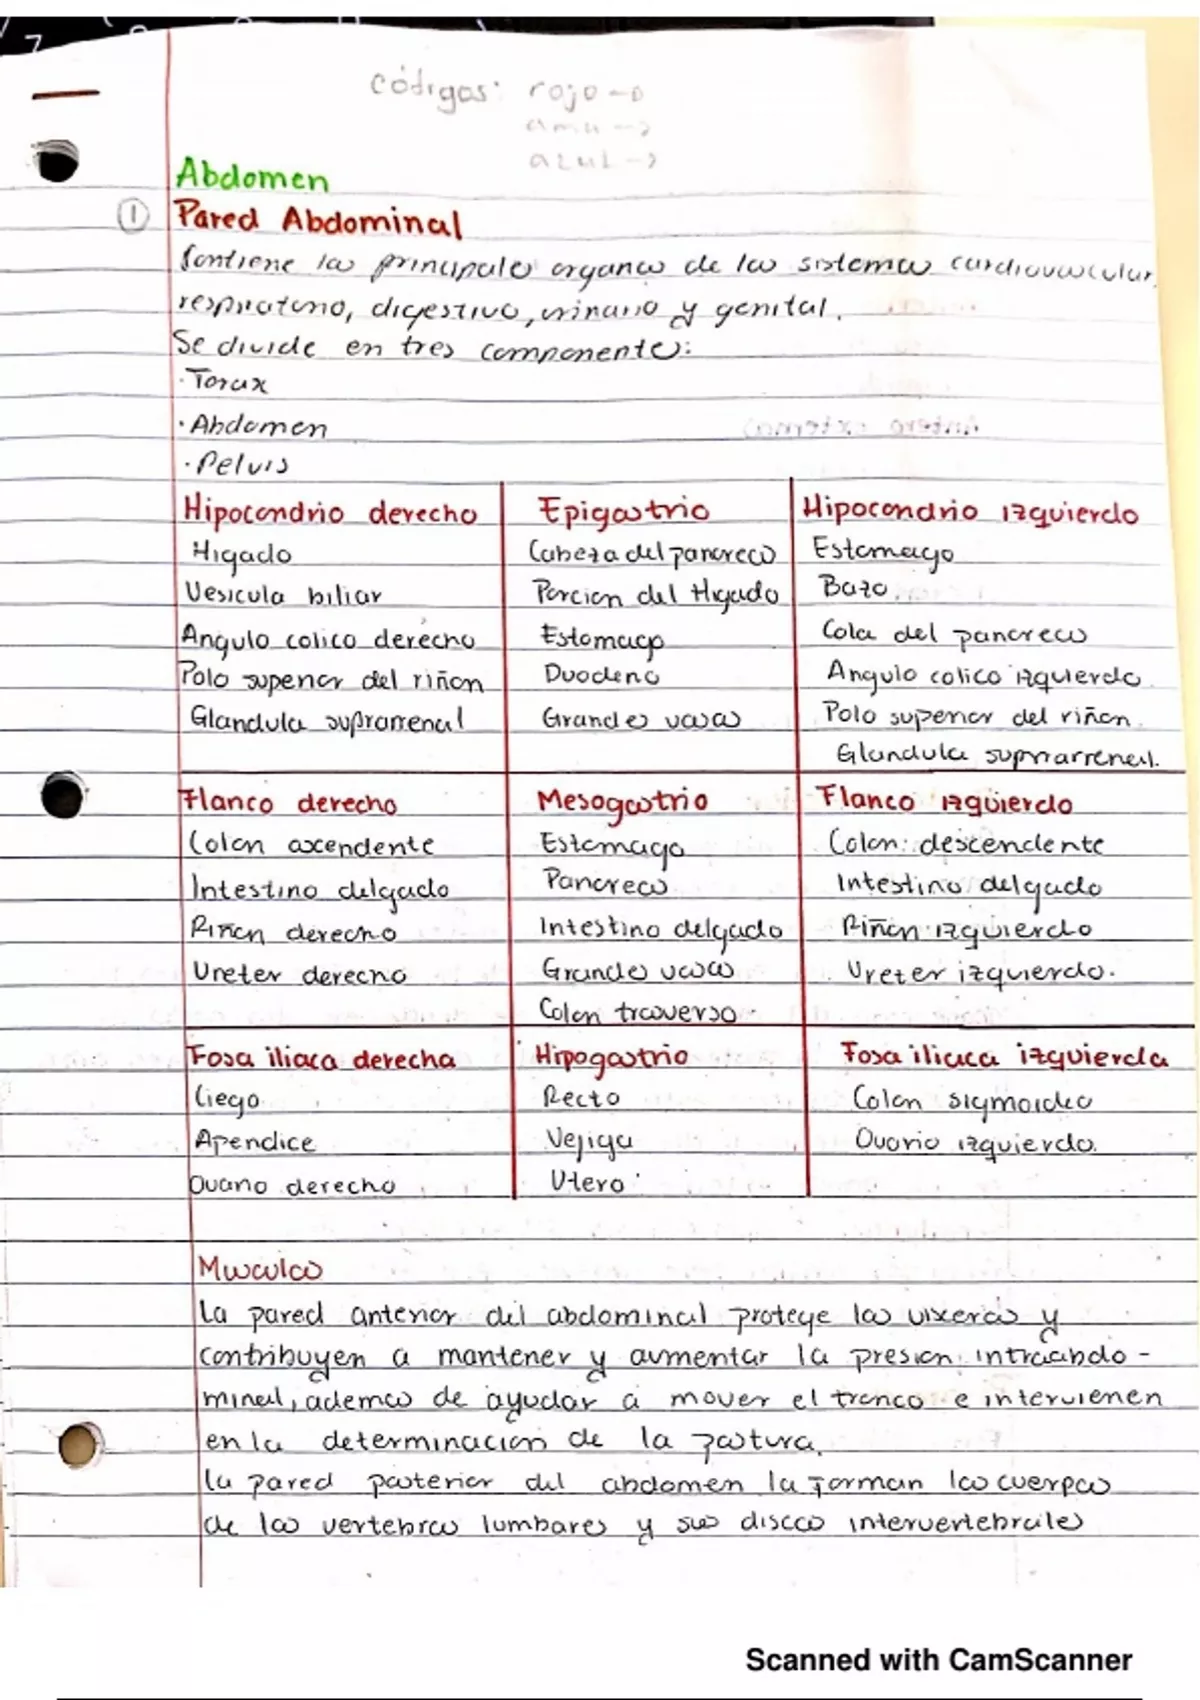 7
códigos: rojo →
ama →
azul →
Abdomen
① Pared Abdominal
Contiene los principales organos de los sistemas cardiovascular,
respiratorio, digestivo, urinario y genital.
Se divide en tres componentes:
· Torax
· Abdomen
· Pelvis
Hipocondrio derecho Epigastrio Hipocondrio izquierdo
Higado Cabeza del pancreas Estomago
Vesicula biliar Porcion del Higado Bazo
Angulo colico derecho Estomago Cola del pancreas
Polo superior del riñon Duodeno Angulo colico izquierdo
Glandula suprarrenal Grandes vasos Polo superior del riñon
Glandula suprrarrenal.
Flanco derecho Mesogastrio Flanco izquierdo
Colon ascendente Estomago Colon descendente
Intestino delgado Pancreas Intestino delgado
Riñon derecho Intestino delgado Riñon izquierdo
Ureter derecho Grandes vasos Ureter izquierdo.
Colon trasverso
Fosa iliaca derecha Hipogastrio Fosa iliaca izquierda
Ciego Recto Colon sigmoideo
Apendice Vejiga Ovario izquierdo.
Ovario derecho Utero
Musculos
La pared anterior del abdominal protege las visceras y
contribuyen a mantener y aumentar la presion intraabdo-
minal, ademas de ayudar a mover el tronco e intervienen
en la determinacion de la postura.
la pared posterior del abdomen la forman los cuerpos
de las vertebras lumbares y sus discos intervertebrales
Scanned with CamScanner